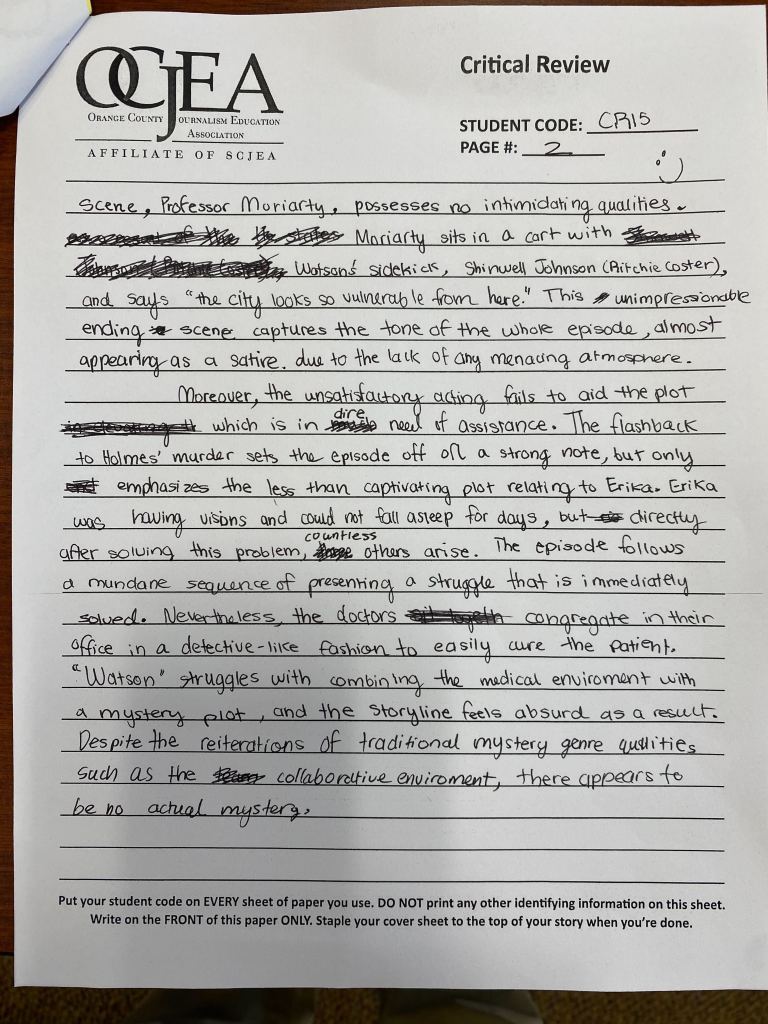 OCJEA
ORANGE COUNTY JOURNALISM EDUCATION
ASSOCIATION
AFFILIATE OF SCJEA
Critical Review
STUDENT CODE: CR15
PAGE #: 2
scene, Professor Moriarty, possesses no intimidating qualities.
Moriarty sits in a cart with
Watson's sidekick, Shinwell Johnson (Ritchie Coster),
and says "the city looks so vulnerable from here." This unimpressionable
ending scene captures the tone of the whole episode, almost
appearing as a satire. due to the lack of any menacing atmosphere.
Moreover, the unsatisfactory acting fails to aid the plot
which is in dire need of assistance. The flashback
to Holmes' murder sets the episode off on a strong note, but only
emphasizes the less than captivating plot relating to Erika. Erika
was having visions and could not fall asleep for days, but directly
after solving this problem, countless others arise. The episode follows
a mundane sequence of presenting a struggle that is immediately
solved. Nevertheless, the doctors congregate in their
office in a detective-like fashion to easily cure the patient.
"Watson" struggles with combining the medical enviroment with
a mystery plot, and the storyline feels absurd as a result.
Despite the reiterations of traditional mystery genre qualities
such as the collaborative enviroment, there appears to
be no actual mystery.
Put your student code on EVERY sheet of paper you use. DO NOT print any other identifying information on this sheet.
Write on the FRONT of this paper ONLY. Staple your cover sheet to the top of your story when you're done.